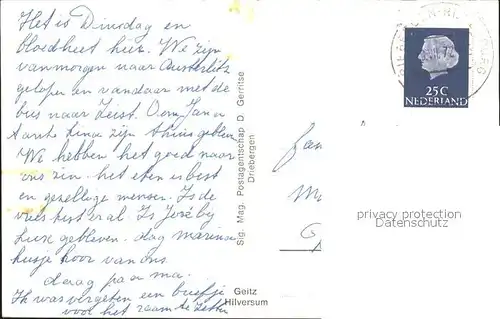 Het is Dinsdag en
bloedheet hier. We zijn
vanmorgen naar Austerlitz
gelopen en vandaar met de
bus naar Zeist. Oom Jan en
tante Lena zijn thuis gebleven
We hebben het goed naar
ons zin. het eten is best
en gezellige mensen. Is de
vries kist er al Is José bij
Luuk gebleven. dag
kusje hoor van ons
daag pa en ma.
Ik was vergeten een briefje
voor het raam te zetten
Sig. Mag. Postagentschap D. Gerritse
Driebergen
Geitz
Hilversum
25C
NEDERLAND
privacy protection
Datenschutz